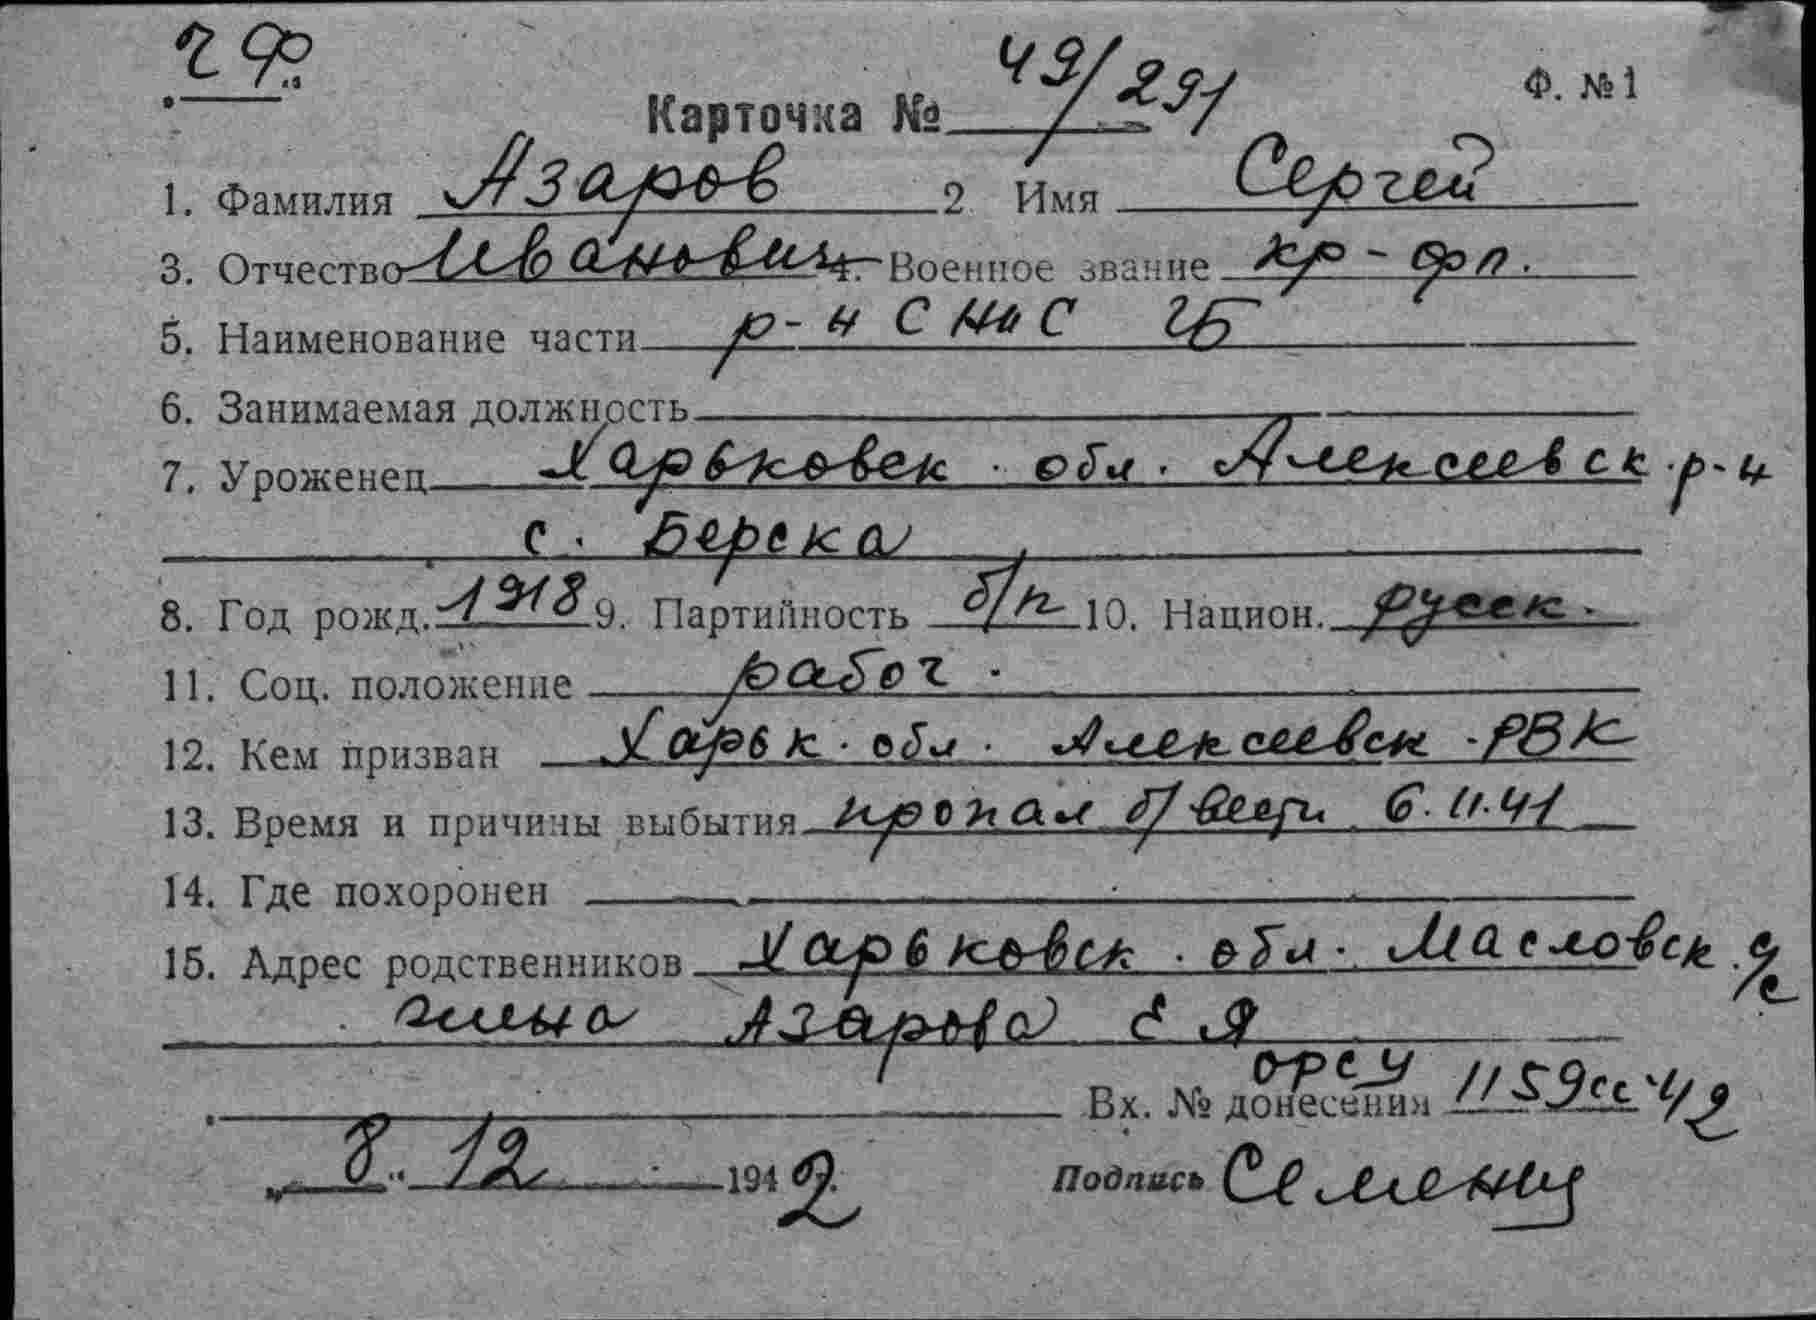 ЧФ.
Карточка № 49/291
Ф. №1
1. Фамилия Азаров 2 Имя Сергей
3. Отчество Иванович 4. Военное звание кр-фл.
5. Наименование части р-н СНиС ГБ
6. Занимаемая должность
7. Уроженец Харьковск. обл. Алексеевск. р-н
с. Берека
8. Год рожд. 1918 9. Партийность б/п 10. Национ. русск.
11. Соц. положение рабоч.
12. Кем призван Харьк. обл. Алексеевск. РВК
13. Время и причины выбытия пропал б/вести 6.11.41
14. Где похоронен
15. Адрес родственников Харьковск. обл. Масловск. с/с
жена Азарова Е Я
орсу
Вх. № донесения 1159сс 42
„8“ 12 1942
Подпись